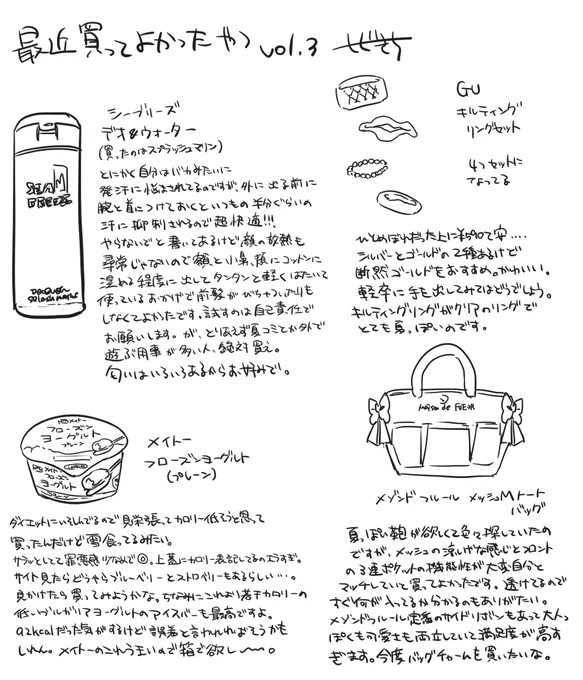 最近買ってよかったやつ vol.3
シーブリーズ
デオ&ウォーター
(買ったのはスプラッシュマリン)
とにかく自分はバカみたいに
発汗に悩まされてるのですが、外に出る前に
腕と首につけておくといつもの半分ぐらいの
汗に抑制されるので超快適!!!
やらないでと書いてあるけど顔の放熱も
尋常じゃないので額と小鼻、頬にコットンに
湿める程度に出してタンタンと軽くはたいて
使っているおかげで前髪がびちゃつ
しなくてよかったです。試すのは自己責任で
お願いします。が、とりあえず夏コミとか外で
遊ぶ用事が多い人、絶対買え。
匂いはいろいろあるからお好みで。
SEA
BREEZE
GU
キルティング
リングセット
4つセットに
なってる
ひとめぼれだった上に¥590で安....
シルバーとゴールドの2種あるけど
断然ゴールドをおすすめ。かわいい。
軽率に手を出してみてはどうでしょう。
キルティングリングがクリアのリングで
とても夏っぽいのです。
メイトー
フローズン
ヨーグルト
プレーン
メイトー
フローズン
ヨーグルト
メイトー
フローズンヨーグルト
(プレーン)
ダイエットにいそしんでるので見栄張ってカロリー低そうと思って
買ったんだけど
サラッとしてて罪悪感少なめで◎。上蓋にカロリー表記してるのエラすぎ。
サイト見たらどうやらブルーベリーとストロベリーもあるらしい…。
見かけたら買ってみようかな。ちなみにこれより若干カロリーの
低いブルガリアヨーグルトのアイスバーも最高ですよ。
92kcalだった気がするけど誤差と言われればそうかも
しれん。メイトーのこれうまいので箱で欲し〜〜。
Maison de FLEUR
メゾンドフルール メッシュMトート
バッグ
夏っぽい鞄が欲しくて色々探していたの
ですが、メッシュの涼しげな感じとフロント
の3連ポケットの機能性が大変自分と
マッチしていて買ってよかったです。透けてるので
すぐ何が入ってるか分かるのもありがたい。
メゾンドフルール定番のサイドリボンもあって大人っ
ぽくも可愛さも両立していて満足度が高す
ぎます。今度バッグチャームを買いたいな。